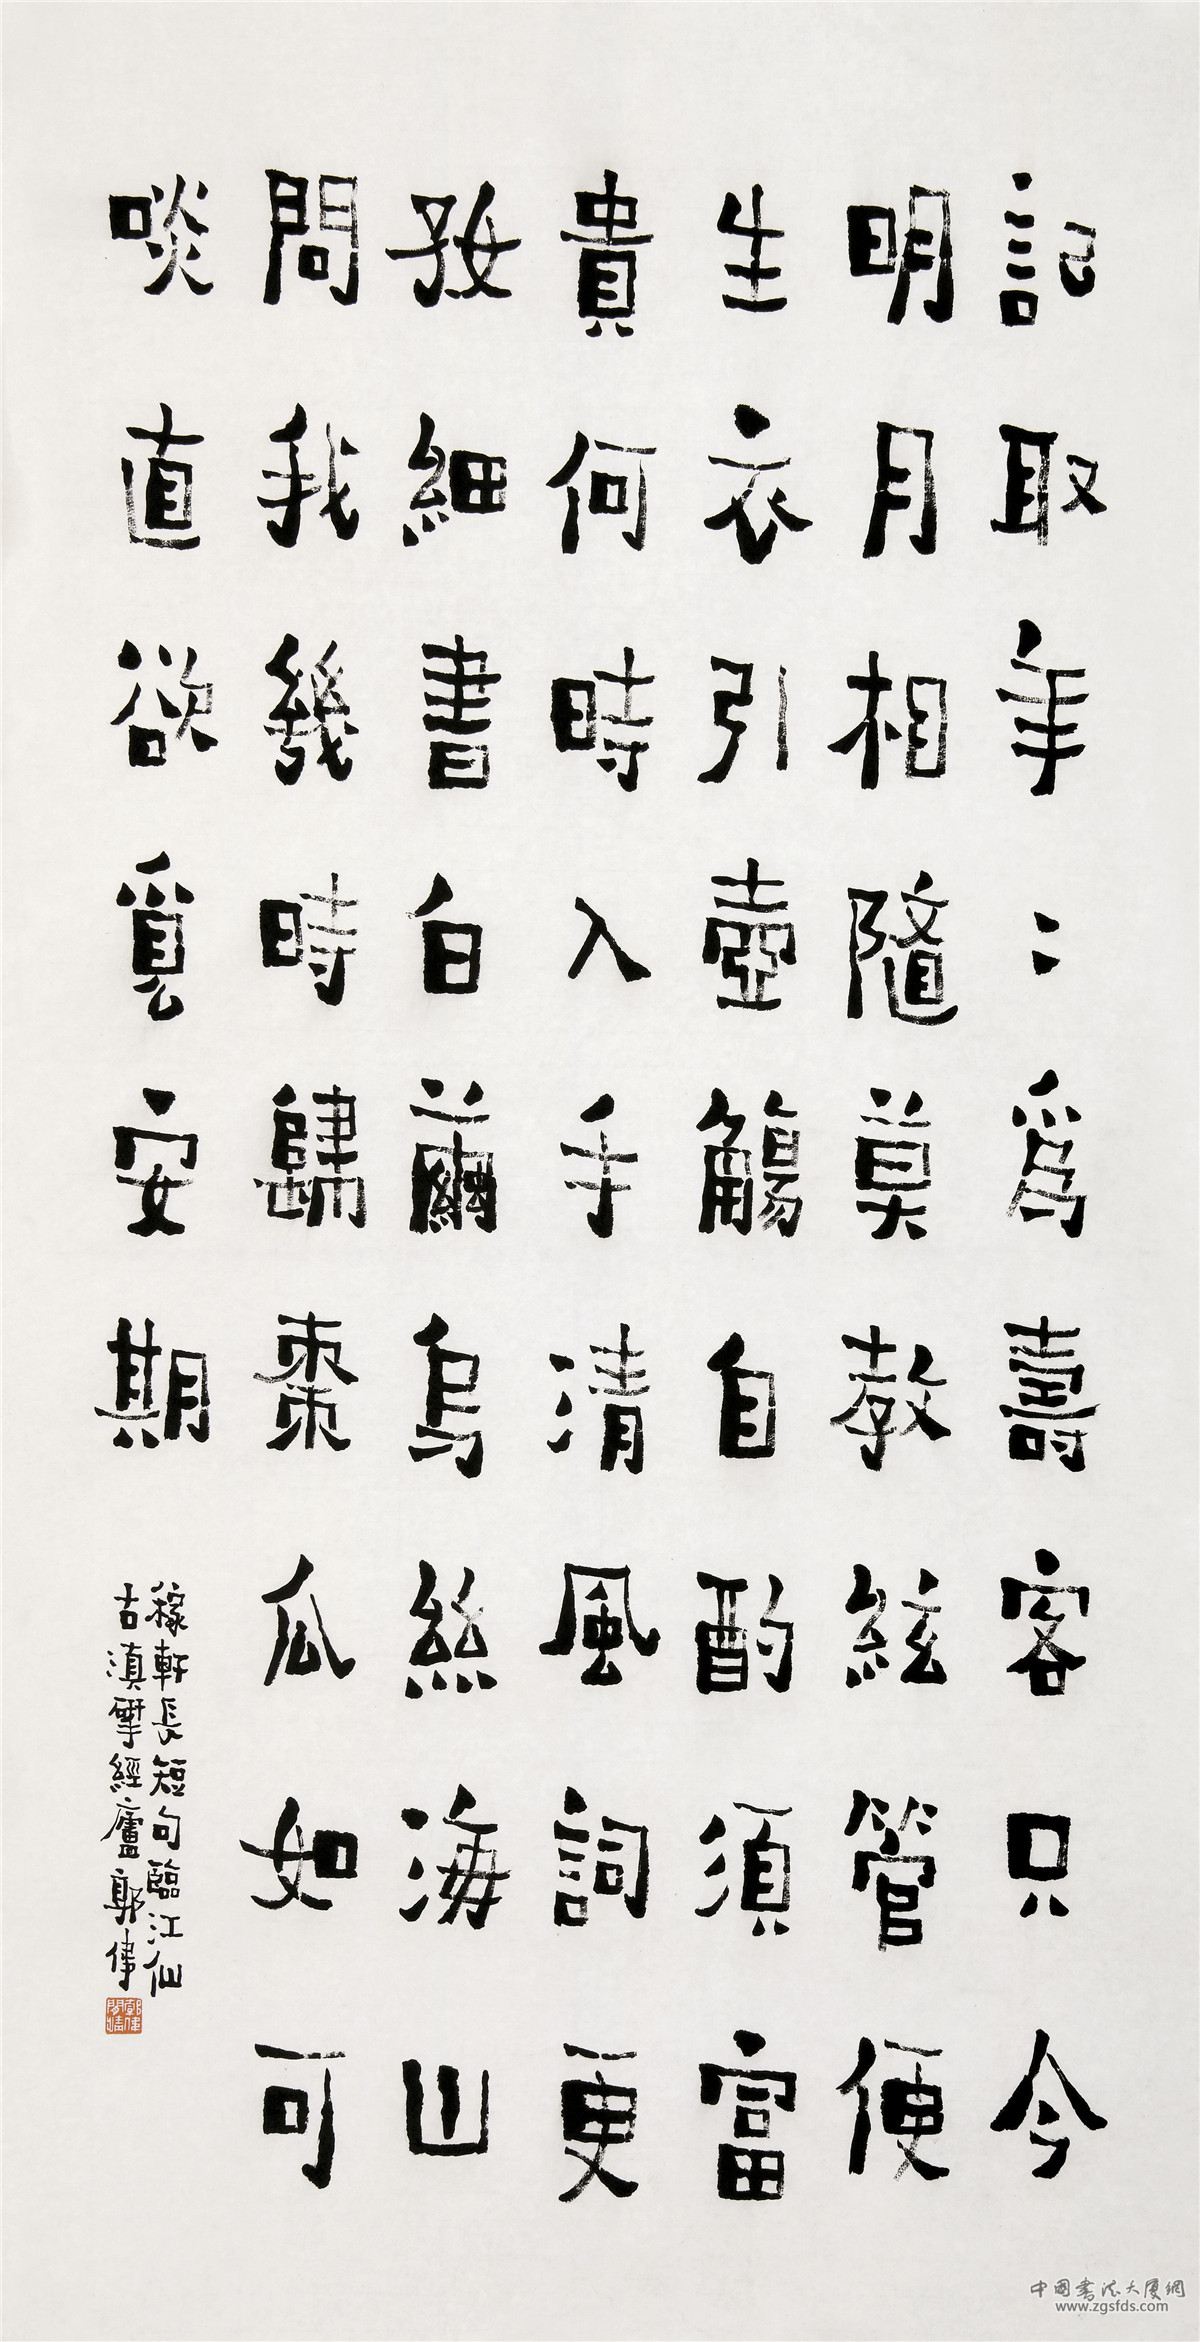 記取年〻爲壽客只今
明月相隨莫教絃管便
生衣引壺觴自酌須富
貴何時入手清風詞更
好細書白繭烏絲海山
問我幾時歸棗瓜如可
啖直欲覓安期
稼軒長短句臨江仙
古滇揅經廬郭偉
中國書法大廈網
www.zgsfds.com